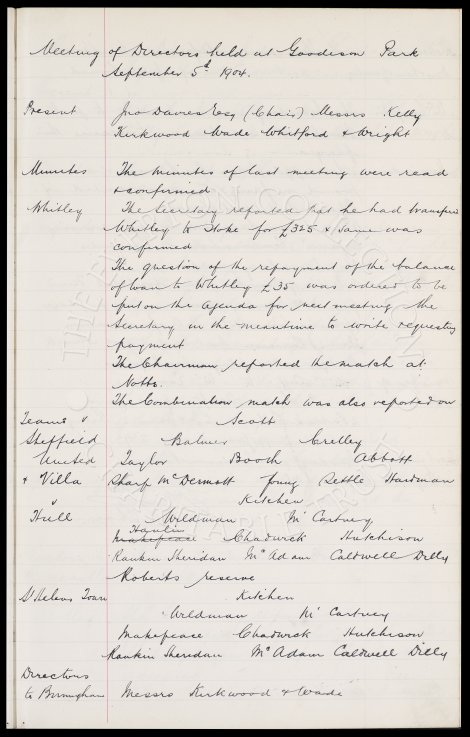 Meeting of Directors held at Goodison Park
September 5th 1904.
Present Jno Davies Esq (Chair) Messrs Kelly
Kirkwood Wade Whitford & Wright
Minutes The minutes of last meeting were read
& confirmed
Whitley The Secretary reported that he had transferred
Whitley to Stoke for £325 & same was
confirmed
The question of the repayment of the balance
of loan to Whitley £35 was ordered to be
put on the Agenda for next meeting the
Secretary in the meantime to write requesting
payment
The Chairman reported the match at
Notts.
The Combination match was also reported on
Teams v Scott
Sheffield Balmer Crelley
United Taylor Booth Abbott
& Villa Sharp McDermott Young Settle Hardman
v Kitchen
Hull Wildman McCartney
Hamlin
Makepeace Chadwick Hutchison
Rankin Sheridan McAdam Caldwell Dilly
Roberts reserve
St Helens Town Kitchen
Wildman McCartney
Makepeace Chadwick Hutchison
Rankin Sheridan McAdam Caldwell Dilly
Directors
to Birmingham Messrs Kirkwood & Wade